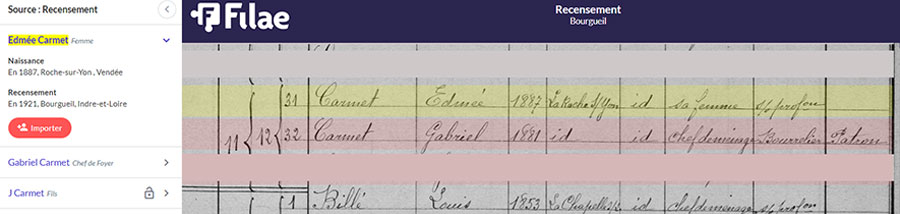 Source : Recensement
Filae
Recensement
Bourgueil
Edmée Carmet Femme
Naissance
En 1887, Roche-sur-Yon , Vendée
Recensement
En 1921, Bourgueil, Indre-et-Loire
Importer
Gabriel Carmet Chef de Foyer
J Carmet Fils
31 Carmet Edmée 1887 La Roche s/Yon id sa femme s/ profon
11 12 32 Carmet Gabriel 1881 id id chef de ménage Bourrelier Patron
1 Billé Louis 1853 La Chapelle s/ id chef de ménage s/ profon